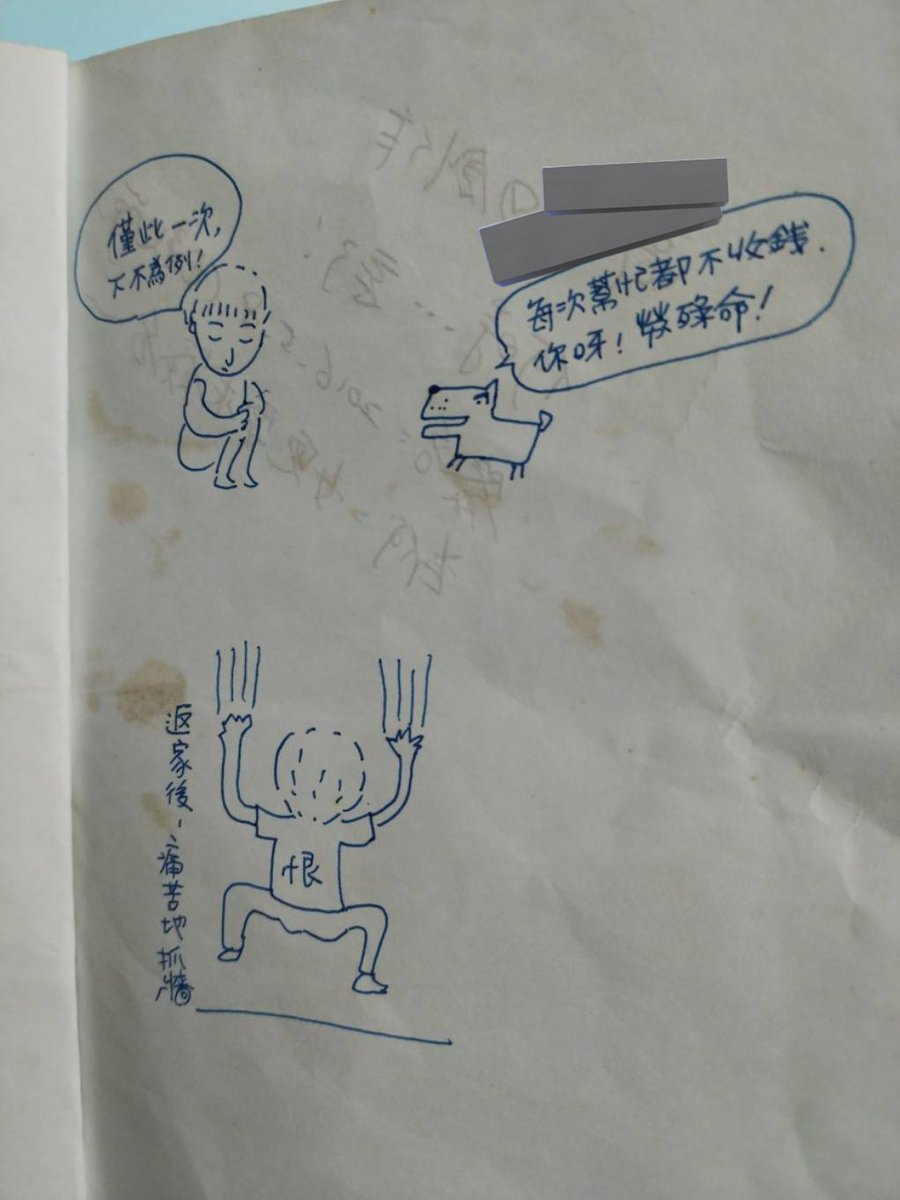 僅此一次,
下不為例!
每次幫忙都不收錢.
你呀!勞碌命!
返家後,痛苦地抓牆
恨